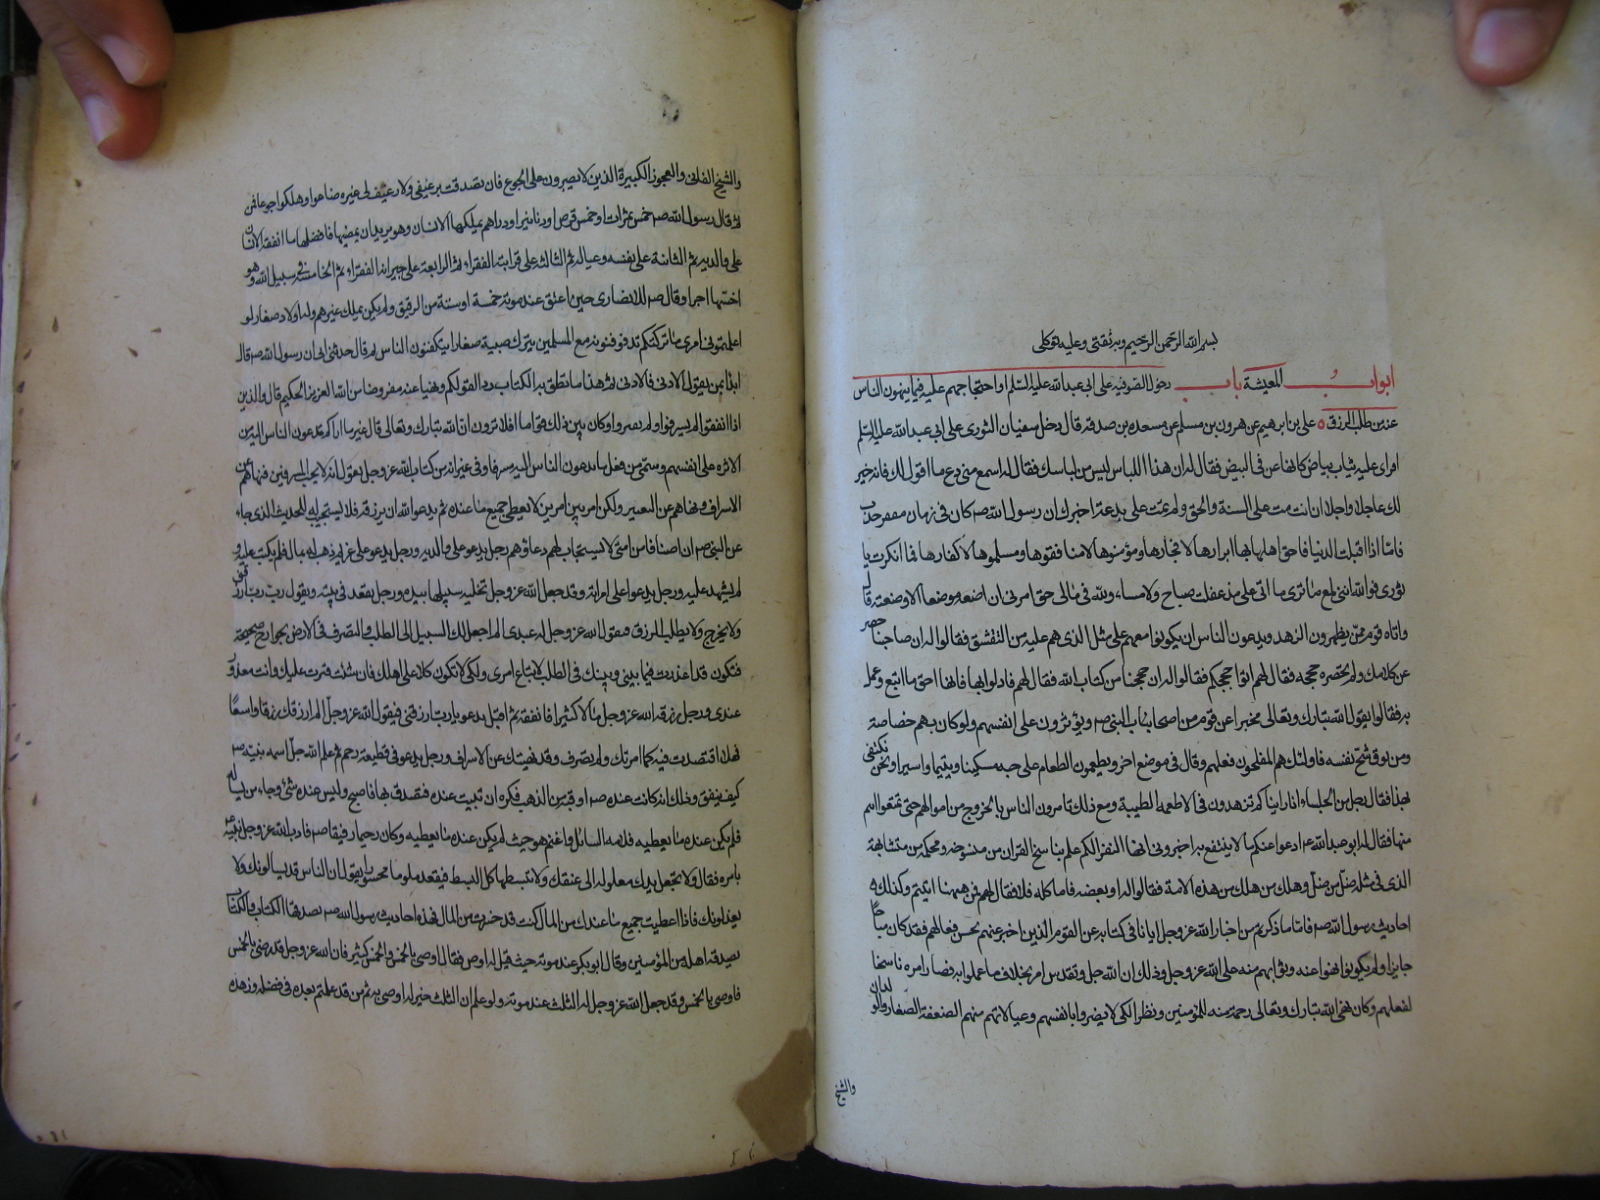 بسم الله الرحمن الرحيم وبه ثقتي وعليه توكلي
ابواب المعيشة باب دخول الصوفية على ابى عبدالله عليه السّلم واحتجاجهم عليه فيما ينهون الناس
عنه من طلب الرزق ٥ على بن ابرهيم عن هرون بن مسلم عن مسعده بن صدقه قال دخل سفيان الثورى على ابى عبد الله عليه السّلم
فراى عليه ثياب بياض كانها غرقى البيض فقال له ان هذا اللباس ليس من لباسك فقال له اسمع منى وع ما اقول لك فانه خير
لك عاجلا واجلا ان انت مت على السنة والحق ولم تمت على بدعة اخبرك ان رسول الله صه كان فى زمان مقفر جدب
فامّا اذا اقبلت الدنيا فاحق اهلها بها ابرارها لا فجارها ومؤمنوها لا منافقوها ومسلموها لا كفارها فما انكرت يا
ثورى فوالله اننى لمع ما ترى ما اتى على مذ عقلت صباح ولا مساء ولله فى مالى حق امرنى ان اضعه موضعا الا وضعته قال
واتاه قوم ممّن يظهرون الزهد ويدعون الناس ان يكونوا معهم على مثل الذى هم عليه من التقشف فقالوا له ان صاحبنا حصر
عن كلامك ولم تحضره حججه فقال لهم هاتوا حججكم فقالوا له ان حججنا من كتاب الله فقال لهم فادلوا بها فانها احق ما اتبع وعمل
به فقالوا يقول الله تبارك وتعالى مخبرا عن قوم من اصحاب النبى صه ويؤثرون على انفسهم ولو كان بهم خصاصة
ومن يوق شح نفسه فاولئك هم المفلحون فمدح فعلهم وقال فى موضع اخر ويطعمون الطعام على حبه مسكينا ويتيما واسيرا ونحن نكتفى
بهذا فقال رجل من الجلساء انا رايناكم تزهدون فى الاطعمه الطيبة ومع ذلك تامرون الناس بالخروج من اموالهم حتى تمتعوا انتم
منها فقال له ابو عبدالله ع دعوا عنكم ما لا ينتفع به اخبرونى ايها النفر الكم علم بناسخ القران من منسوخه ومحكمه من متشابهه
الذى فى مثله ضلّ من ضلّ وهلك من هلك من هذه الامة فقالوا له او بعضه فاما كله فلا فقال لهم فمن هيهنا اتيتم وكذلك
احاديث رسول الله صه فامّا ما ذكرتم من اخبار الله عز وجل ايانا فى كتابه عن القوم الذين اخبر عنهم بحسن فعالهم فقد كان مباحا
جايزا ولم يكونوا نهوا عنه وثوابهم منه على الله عز وجل وذلك ان الله جل وتقدس امر بخلاف ما عملوا به فصار امره ناسخا
لفعلهم وكان نهى الله تبارك وتعالى رحمة منه للمؤمنين ونظرا لكى لا يضروا بانفسهم وعيالاتهم منهم الضعفة الصغار والولدان
والشيخ
والشيخ الفانى والعجوز الكبيرة الذين لا يصبرون على الجوع فان تصدقت برغيفى ولا رغيف لى غيره ضاعوا وهلكوا جوعا فمن
ثم قال رسول الله صه خمس تمرات او خمس قرص او دنانير او دراهم يملكها الانسان وهو يريد ان يمضيها فافضلها ما انفقه الانسان
على والديه ثم الثانية على نفسه وعياله ثم الثالثه على قرابته الفقراء ثم الرابعة على جيرانه الفقراء ثم الخامسة فى سبيل الله وهو
اخسها اجرا وقال صه للانصارى حين اعتق عند موته خمسة او ستة من الرقيق ولم يكن يملك غيرهم وله اولاد صغار لو
اعلمتونى امره ما تركتكم تدفنونه مع المسلمين يترك صبية صغارا يتكففون الناس ثم قال حدثنى ابى ان رسول الله صه قال
ابدا بمن يعول الادنى فالادنى ثم هذا ما نطق به الكتاب ردا لقولكم ونهيا عنه مفروضا من الله العزيز الحكيم قال والذين
اذا انفقوا لم يسرفوا ولم يقتروا وكان بين ذلك قواما افلا ترون ان الله تبارك وتعالى قال غير ما اراكم تدعون الناس اليه من
الاثره على انفسهم وسمّى من فعل ما يدعون الناس اليه مسرفا وفى غير اية من كتاب الله عز وجل يقول انه لا يحب المسرفين فنهاهم عن
الاسراف ونهاهم عن التقتير ولكن امر بين امرين لا يعطى جميع ما عنده ثم يدعو الله ان يرزقه فلا يستجيب له للحديث الذى جاء
عن النبى صه ان اصنافا من امتى لا يستجاب لهم دعاؤهم رجل يدعو على والديه ورجل يدعو على غريم ذهب له بمال فلم يكتب عليه و
لم يشهد عليه ورجل يدعوا على امراته وقد جعل الله عز وجل تخليه سبيلها بيده ورجل يقعد فى بيته ويقول رب ارزقنى
ولا يخرج ولا يطلب الرزق فيقول الله عز وجل له عبدى الم اجعل لك السبيل الى الطلب والتصرف فى الارض بجوارح صحيحة
فتكون قد اعذرت فيما بينى وبينك فى الطلب لاتباع امرى ولكى لا تكون كلا على اهلك فان شئت رزقتك وان شئت قترت عليك وانت معذور
عندى ورجل رزقه الله عز وجل مالا كثيرا فانفقه ثم اقبل يدعو يا رب ارزقنى فيقول الله عز وجل الم ارزقك رزقا واسعًا
فهلا اقتصدت فيه كما امرتك ولم تسرف وقد نهيتك عن الاسراف ورجل يدعو فى قطيعة رحم ثم علم الله جلّ اسمه نبيه صه
كيف ينفق وذلك انه كانت عنده صه اوقية من الذهب فكره ان تبيت عنده فتصدق بها فاصبح وليس عنده شئ وجاءه من يساله
فلم يكن عنده ما يعطيه فلامه السائل واغتم هو حيث لم يكن عنده ما يعطيه وكان رحيما رفيقا صه فادب الله عز وجل نبيه ع
بامره فقال ولا تجعل يدك مغلولة الى عنقك ولا تبسطها كل البسط فتقعد ملوما محسورا يقول ان الناس قد يسالونك ولا
يعذرونك فاذا اعطيت جميع ما عندك من المال كنت قد حسرت من المال فهذه احاديث رسول الله صه يصدقها الكتاب والكتاب
يصدقه اهله من المؤمنين وقال ابو بكر عند موته حيث قيل له اوص فقال اوصى بالخمس والخمس كثير فان الله عز وجل قد رضى بالخمس
فاوصى بالخمس وقد جعل الله عز وجل له الثلث عند موته ولو علم ان الثلث خير له اوصى به ثم من قد علمتم بعده فى فضله وزهده